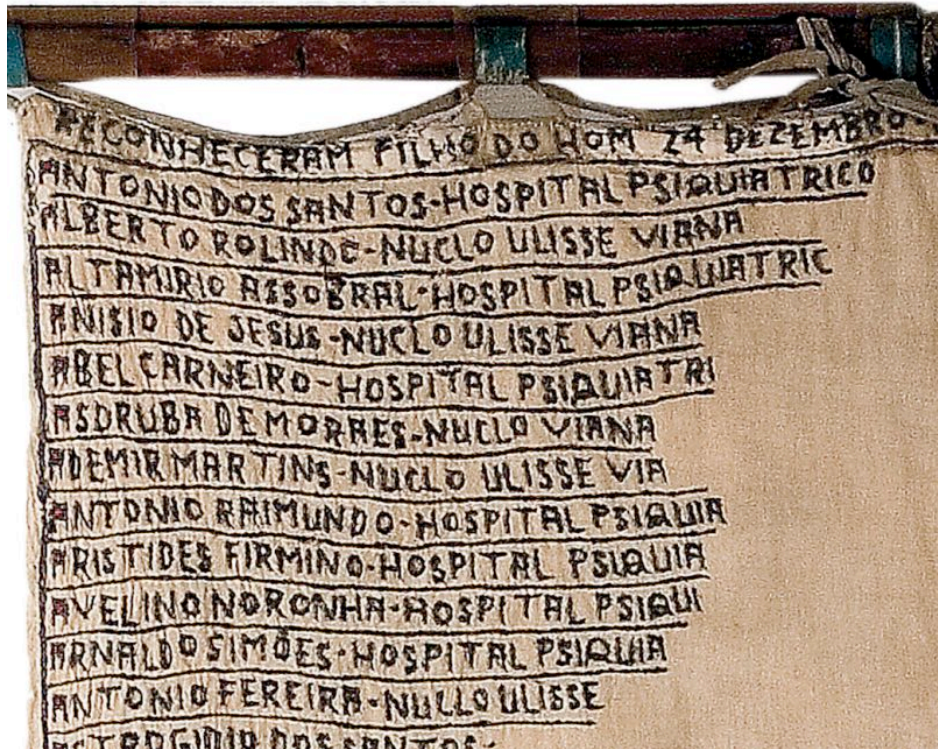 RECONHECERAM FILHO DO HOM 24 DEZEMBRO-
ANTONIO DOS SANTOS-HOSPITAL PSIQUIATRICO
ALBERTO ROLINDO-NUCLO ULISSE VIANA
ALTAMIRIO ASSOBRAL-HOSPITAL PSIQUIATRIC
ANISIO DE JESUS-NUCLO ULISSE VIANA
ABEL CARNEIRO-HOSPITAL PSIQUIATRI
ASDRUBA DE MORAES-NUCLO VIANA
ADEMIR MARTINS-NUCLO ULISSE VIA
ANTONIO RAIMUNDO-HOSPITAL PSIQUIA
ARISTIDES FIRMINO-HOSPITAL PSIQUIA
AVELINO NORONHA-HOSPITAL PSIQUI
ARNALDO SIMÕES-HOSPITAL PSIQUIA
ANTONIO FEREIRA-NULLO ULISSE
DOS SANTOS-